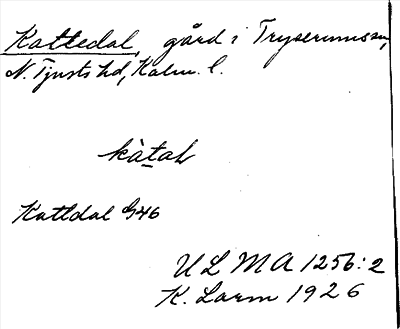 Kattedal, gård i Tryserums sn,
N. Tjusts hd, Kalm. l.
kàtal
Kattdal G46
ULMA 1256:2
K. Larm 1926